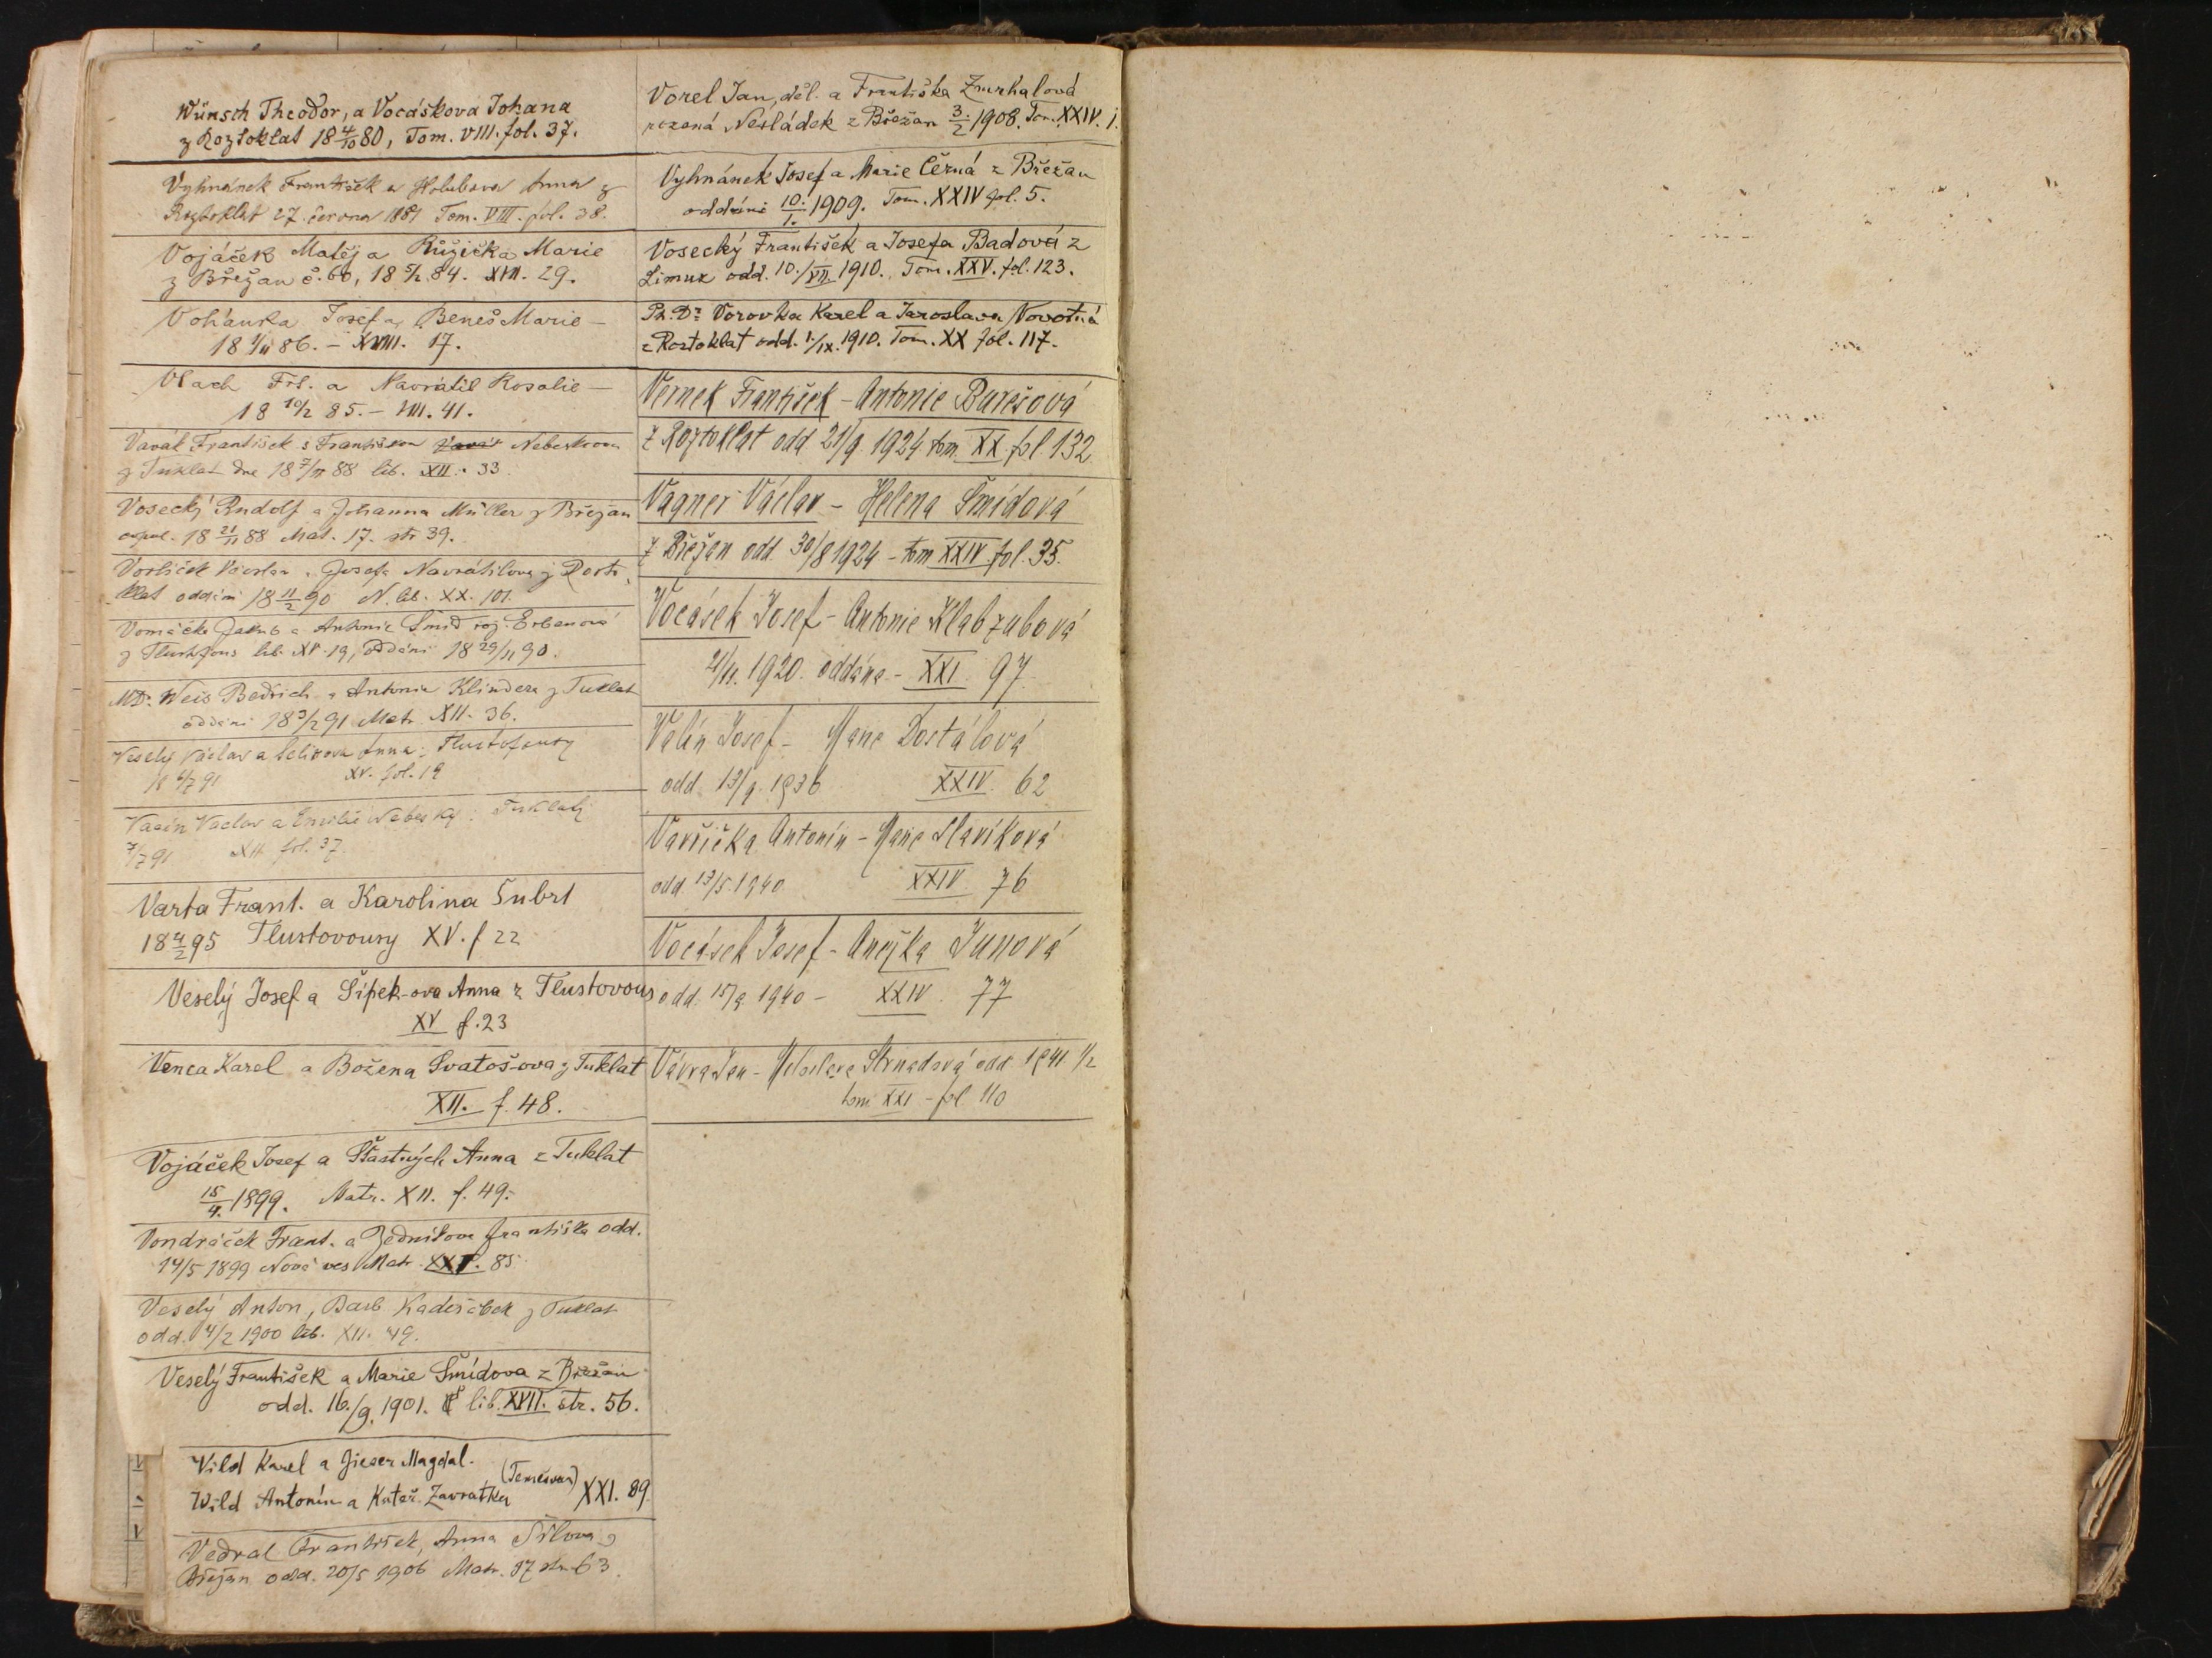 Wünsch Theodor, a Vocáškova Johana
z Roztoklat 18 4/10 80, Tom. VIII. fol. 37.
Vyhnánek František a Holubova Anna z
Roztoklat 27. června 1881 Tom. VIII. fol. 38.
Vojáček Matěj a Růžička Marie
z Břežan č. 60, 18 84. XVII. 29.
Josef a Beneš Marie –
86. – XVIII. 17.
Vlach Frt. a Navrátil Rosalie –
18 10/2 85. – VIII. 41.
František s Františkou Nebeskovou
z Tuklat dne 18 7/11 88 lib. XII. 33
Vosecký Rudolf a Johanna Müller z Břežan
18 21/11 88 Mat. 17. str 39.
Vorlíček Václav a Josefa Navrátilova z Rosto
klat oddáni 18 11/2 90 N. lib. XX. 101.
Vomáčka Jakub a Antonie Šmíd roz. Erbenová
z Tlustovous lib. XV. 19, oddáni 18 29/11 90.
MDr. Weis Bedřich a Antonie Klindera z Tuklat
oddáni 18 3/2 91 Matr. XII. 36.
Veselý Václav a Anna: Tlustovousy
18 6/7 91 XV. fol. 19
Vacín Václav a Emilie Nebesky: Tuklaty
7/7 91 XII fol. 37.
Varta Frant. a Karolina Šubrt
18 4/2 95 Tlustovousy XV. f 22
Veselý Josef a Šípek-ova Anna z Tlustovous
XV f. 23
Venca Karel a Božena Svatoš-ova z Tuklat
XII. f. 48.
Vojáček Josef a Šťastných Anna z Tuklat
15/4. 1899. Matr. XII. f. 49.
Vondráček Frant. a Františka odd.
14/5 1899 Nová ves Matr. 85
Veselý Anton, Barb Kadeřábek z Tuklat
odd. 4/2 1900 lib. XII. 49.
Veselý František a Marie Šmídova z Břežan
odd. 16./9. 1901. lib. XVII. str. 56.
Vild Karel a Gieser Magdal.
Wild Antonín a Kateř. Zavratka (Temešvar) XXI. 89.
Vedral František, Anna Šílova z
Břežan odd. 20/5 1906 Matr. 17 str. 63.
Vorel Jan, děl. a Františka Zmrhalová
rozená Nesládek z Břežan 3./2 1908. Tom. XXIV. 1.
Vyhnánek Josef a Marie Černá z Břežan
oddáni 10./1. 1909. Tom. XXIV fol. 5.
Vosecký František a Josefa Badová z
Limuz odd. 10./VII. 1910. Tom. XXV. fol. 123.
Ph. Dr. Vorovka Karel a Jaroslava Novotná
z Roztoklat odd. 1./IX. 1910. Tom. XX fol. 117.
Vernek František – Antonie Burešová
z Roztoklat odd 21/9. 1924 tom. XX fol 132
Vagner Václav – Helena Šmídová
z Břežan odd 30/8 1924 – tom XXIV fol. 35.
Vocásek Josef – Antonie Klabzubová
1920. oddána – XXI. 97.
Valín Josef – Marie Dostálová
odd. 13/9. 1936 XXIV. 62
Vavřička Antonín – Marie Slavíková
odd. 13/5. 1940 XXIV 76
Vocásek Josef – Anežka Junová
odd. 1940 – XXIV. 77
Vávra Jan – Strnadová odd 1941 1/2
tom XXI – fol. 110